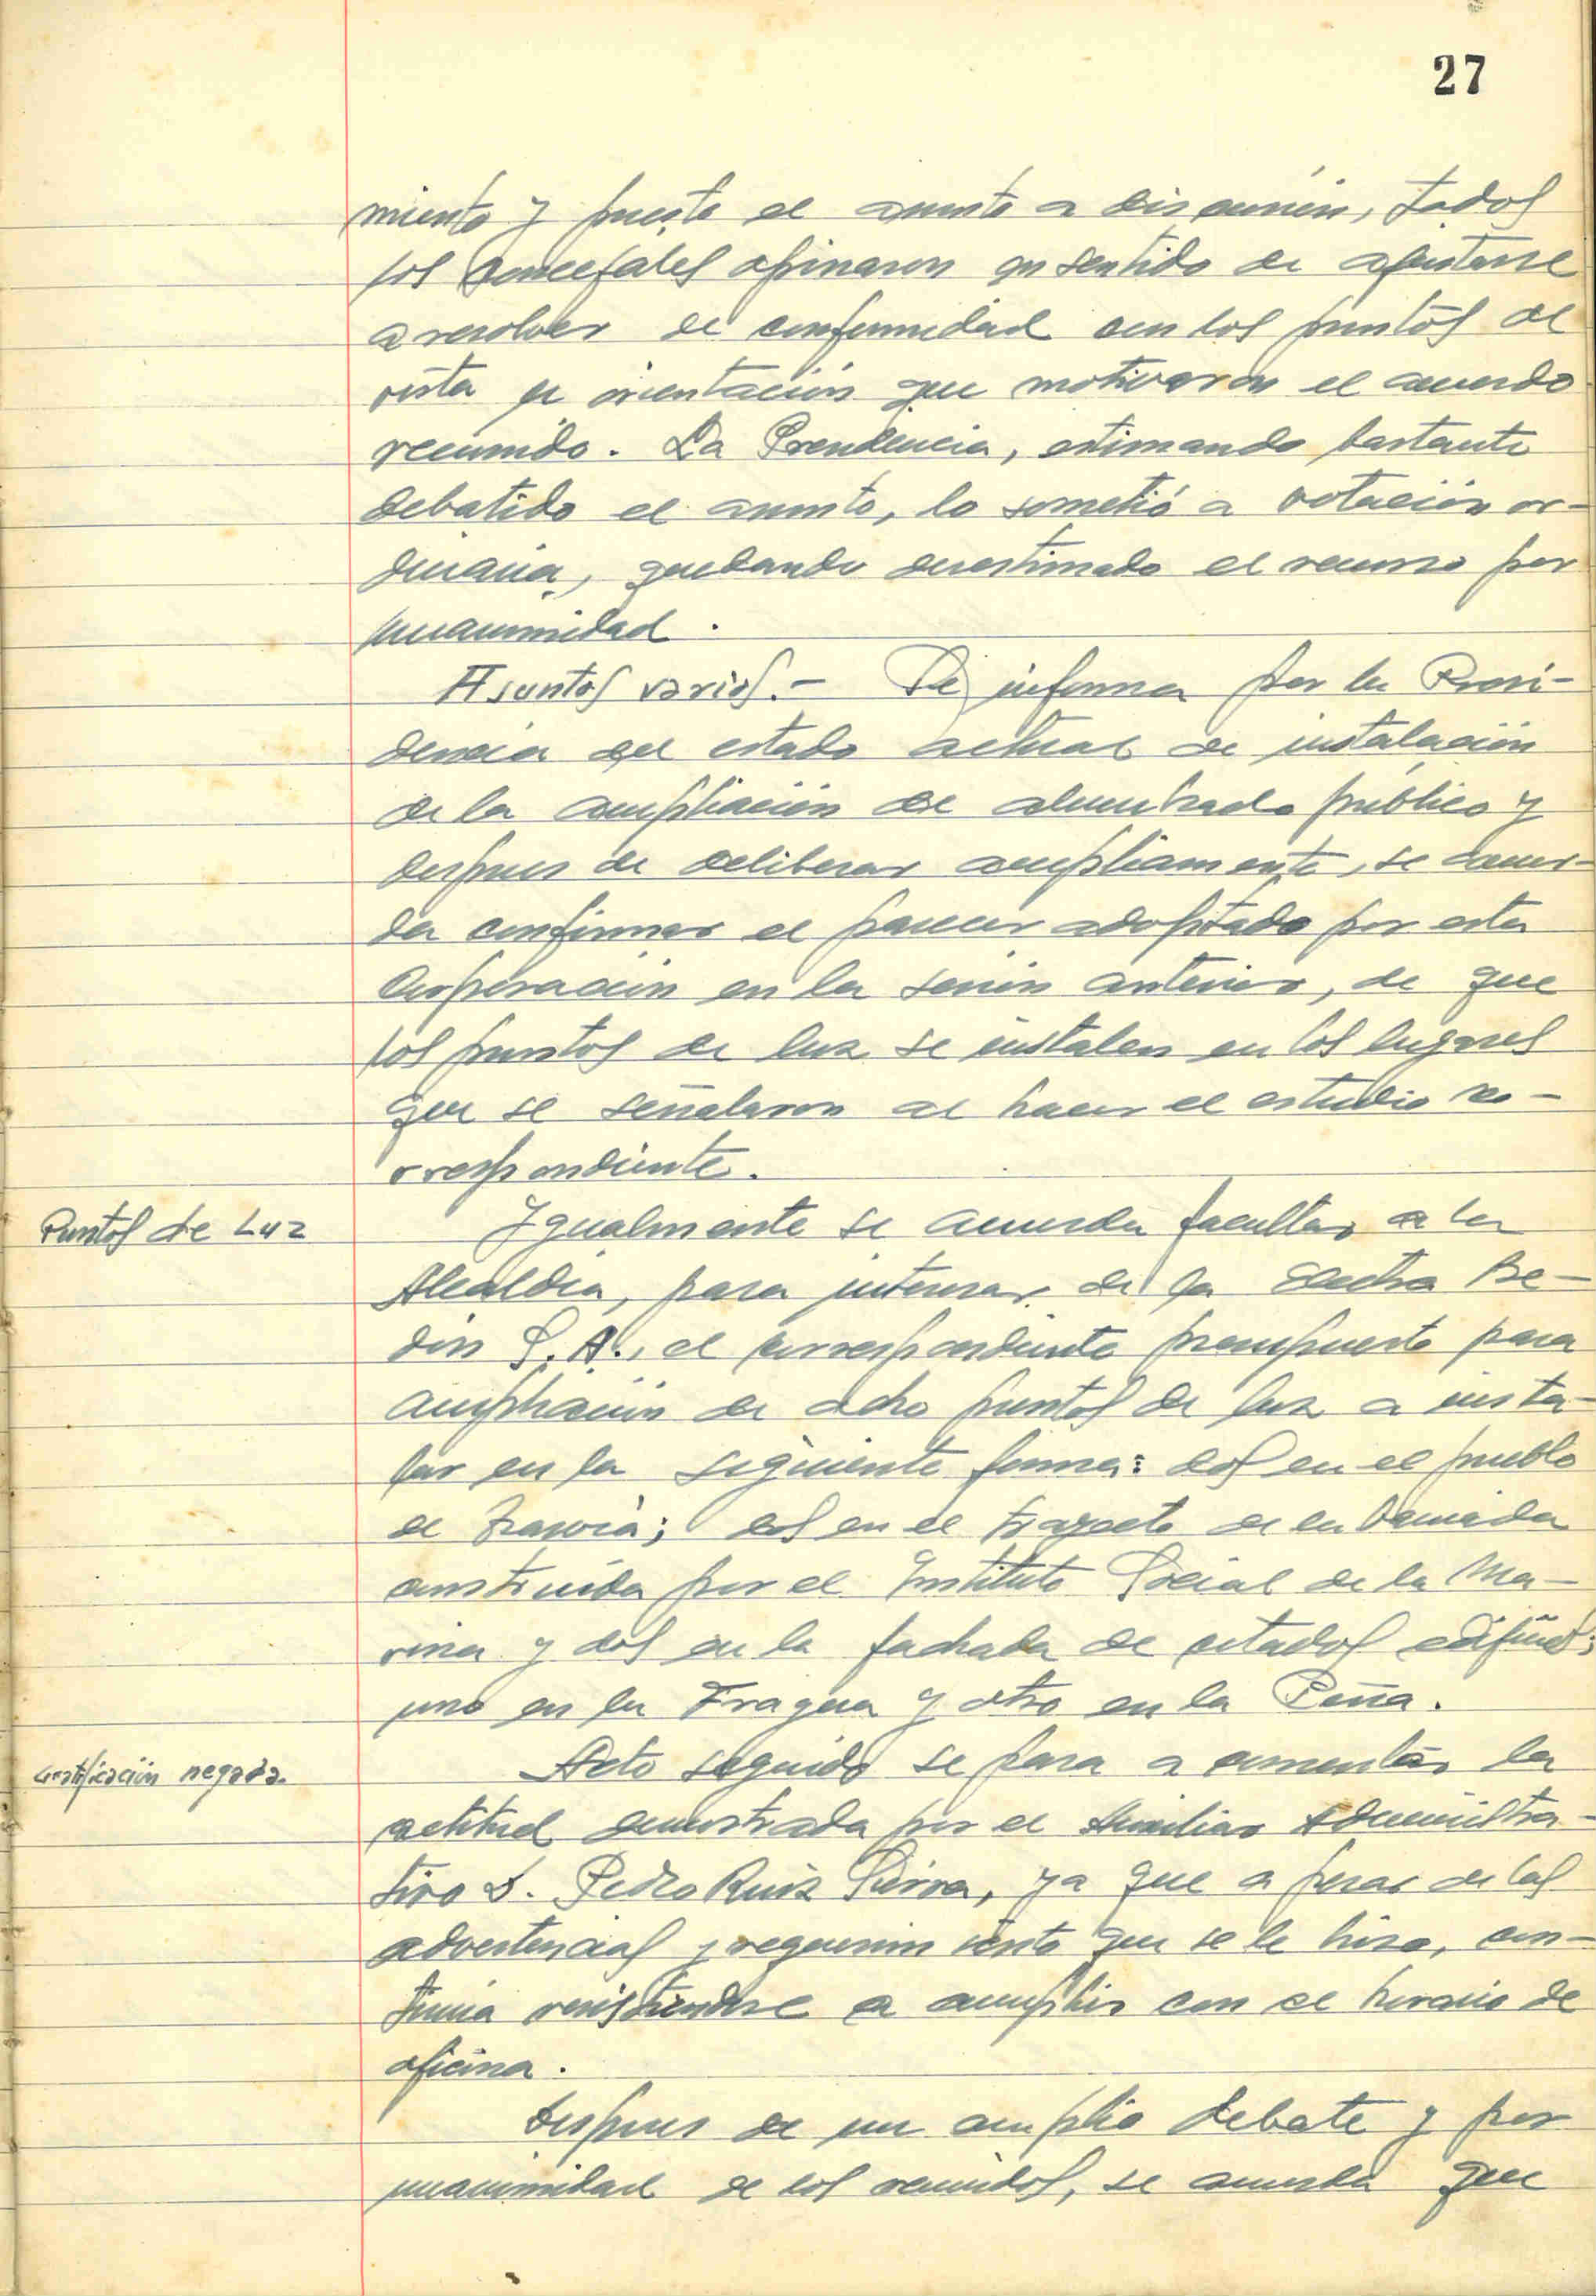 27
miento y puesto el asunto a discusión, todos
los Concejales opinaron en sentido de ajustarse
a resolver de conformidad con los puntos de
vista y orientación que motivaron el acuerdo
recurrido. La Presidencia, estimando bastante
debatido el asunto, lo sometió a votación or-
dinaria, quedando desestimado el recurso por
unanimidad.
Asuntos varios.- Se informa por la Presi-
dencia del estado actual de instalación
de la ampliación de alumbrado público y
despues de deliberar ampliamente, se acuer-
da confirmar el parecer adoptado por esta
Corporación en la sesión anterior, de que
los puntos de luz se instalen en los lugares
que se señalaron al hacer el estudio co-
rrespondiente.
Puntos de Luz
Igualmente se acuerda facultar a la
Alcaldía, para interesar de la Electra Be-
dón S.A., el correspondiente presupuesto para
ampliación de ocho puntos de luz a insta-
lar en la siguiente forma: dos en el pueblo
de ; dos en el trayecto de la barriada
construída por el Instituto Social de la Ma-
rina y dos en la fachada de citados edificios;
uno en la Fragua y otro en la Peña.
Gratificación negada.
Acto seguido se pasa a comentar la
actitud demostrada por el Auxiliar Administra-
tivo D. Pedro Ruiz , ya que a pesar de las
advertencias y requerimiento que se le hizo, con-
tinúa resistiendose a cumplir con el horario de
oficina.
Despues de un amplio debate y por
unanimidad de los reunidos, se acuerda que